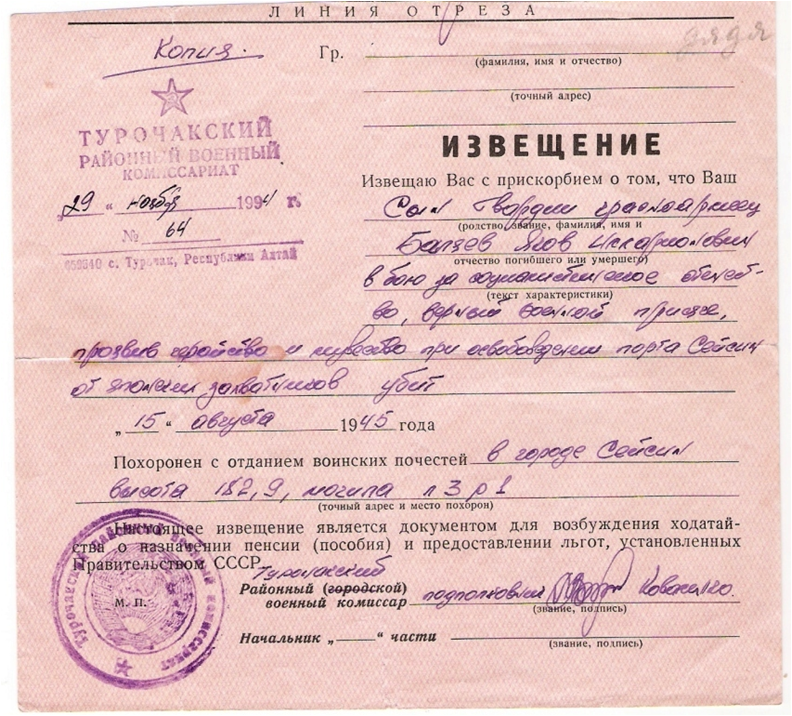 ЛИНИЯ ОТРЕЗА
дядя
Копия.
Гр.
(фамилия, имя и отчество)
(точный адрес)
ТУРОЧАКСКИЙ
РАЙОННЫЙ ВОЕННЫЙ
КОМИССАРИАТ
„29 “ ноября 1994 г.
№ 64
659540 с. Турочак, Республики Алтай
ИЗВЕЩЕНИЕ
Извещаю Вас с прискорбием о том, что Ваш
Сын Гвардии красноармеец
(родство, звание, фамилия, имя и
Яков
отчество погибшего или умершего)
в бою за социалистическое отечест-
(текст характеристики)
во, верный военной присяге,
проявив геройство и мужество при освобождении порта Сейсин
от японских захватчиков убит
„ 15 “ августа 1945 года
Похоронен с отданием воинских почестей в городе Сейсин
высота 182,9, могила л 3 р 1
(точный адрес и место похорон)
Настоящее извещение является документом для возбуждения ходатай-
ства о назначении пенсии (пособия) и предоставлении льгот, установленных
Правительством СССР.
Турочакский
Районный (городской)
военный комиссар подполковник Коваленко.
М. П.
(звание, подпись)
Начальник „ “ части
(звание, подпись)